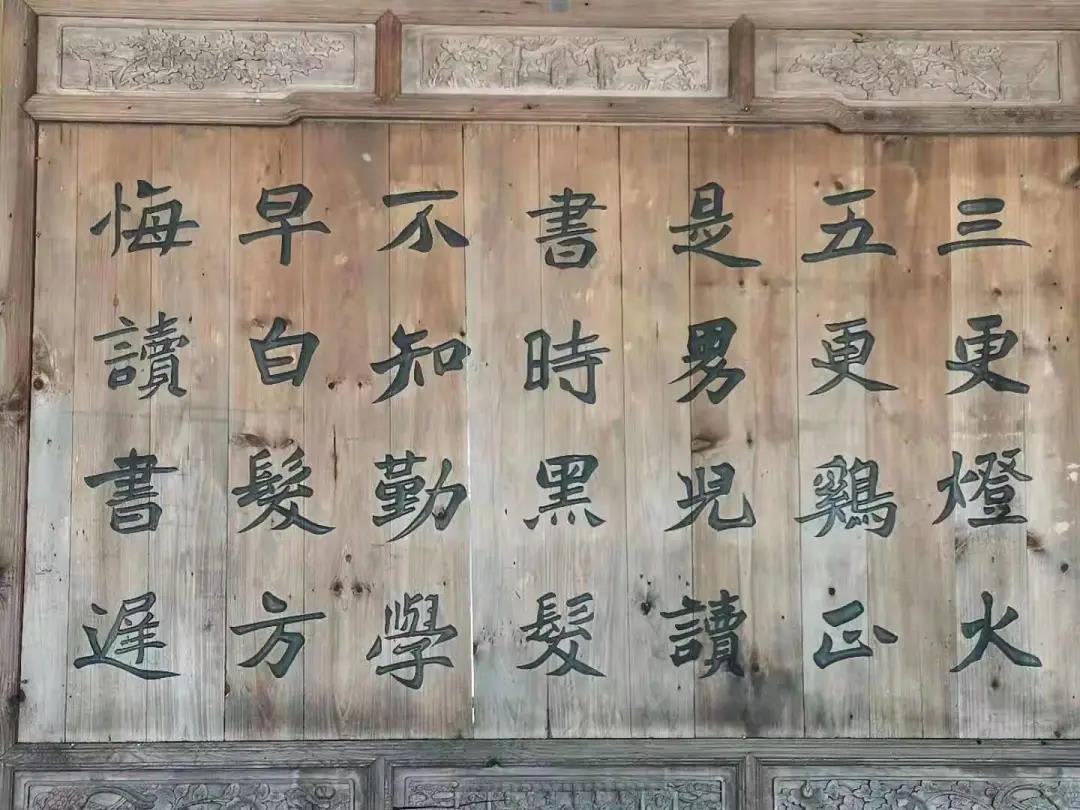 三更燈火
五更鷄正
是男兒讀
書時黑髮
不知勤學
早白髮方
悔讀書遲